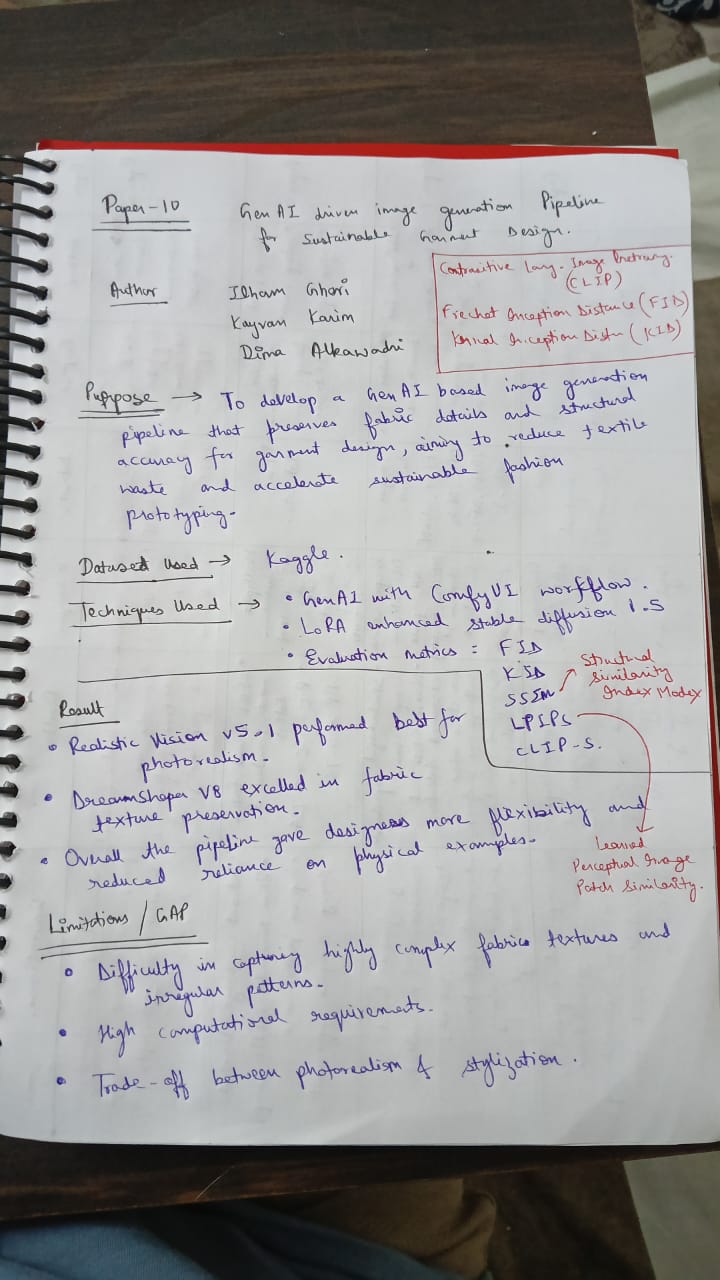 Paper-10
GenAI driven image generation Pipeline
for Sustainable Garment Design.
Contrastive Lang. Image Pretraing.
(CLIP)
Frechet Inception Distance (FID)
Kernal Inception Distn (KID)
Author
Ilham Ghori
Kayvan Karim
Dima Alkawadri
Purpose → To develop a GenAI based image generation
pipeline that preserves fabric details and structural
accuracy for garment design, aiming to reduce textile
waste and accelerate sustainable fashion
prototyping.
Dataset Used → Kaggle.
Techniques Used → • GenAI with ComfyUI workfflow.
• LoRA enhanced stable diffusion 1.5
• Evaluation metrics = FID
KID
SSIM
LPIPs
CLIP-S.
Structural
Similarity
Index Modex
Learned
Perceptual Image
Patch Similarity.
Result
• Realistic Vision v5.1 performed best for
photorealism.
• Dreamshaper V8 excelled in fabric
texture preservation.
• Overall the pipeline gave designess more flexibility and
reduced reliance on physical examples.
Limitations / GAP
• Difficulty in capturing highly complex fabric textures and
irregular patterns.
• High computational requirements.
• Trade-off between photorealism & stylization.